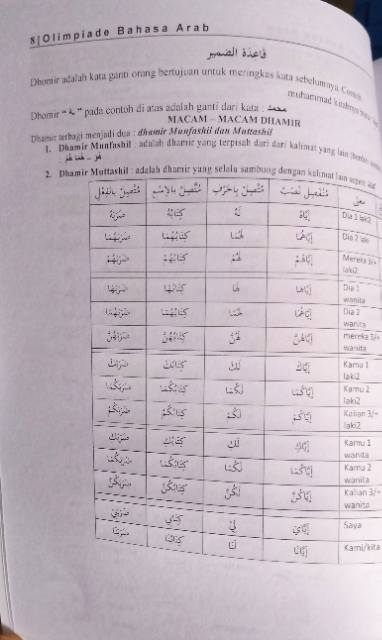 8|Olimpiade Bahasa Arab
قاعدة الضمير
Dhomir adalah kata ganti orang bertujuan untuk meringkas kata sebelumnya. Contoh
muhammad
Dhomir "ـه" pada contoh di atas adalah ganti dari kata : محمد
MACAM – MACAM DHAMIR
Dhamir terbagi menjadi dua : dhamir Munfashil dan Muttashil
1. Dhamir Munfashil : adalah dhamir yang terpisah dari dari kalimat yang lain
هُوَ – هُمَا هُمْ
2. Dhamir Muttashil : adalah dhamir yang selalu sambung dengan kalimat lain
مُتَّصِلْ بِالْفِعْلِ مُتَّصِلْ بِالاِسْمِ مُتَّصِلْ بِاحَرْفِ مُنْفَصِلْ نَصَبْ
ضَرَبَهُ كِتَابُهُ لَهُ إِيَّاهُ Dia 1 laki2
ضَرَبَهُمَا كِتَابُهُمَا لَهُمَا إِيَّاهُمَا Dia 2 laki
ضَرَبَهُمْ كِتَابُهُمْ لَهُمْ إِيَّاهُمْ Mereka 3/+ laki2
ضَرَبَهَا كِتَابُهَا لَهَا إِيَّاهَا Dia 1 wanita
ضَرَبَهُمَا كِتَابُهُمَا لَهُمَا إِيَّاهُمَا Dia 2 wanita
ضَرَبَهُنَّ كِتَابُهُنَّ لَهُنَّ إِيَّاهُنَّ mereka 3/+ wanita
ضَرَبَكَ كِتَابُكَ لَكَ إِيَّاكَ Kamu 1 laki2
ضَرَبَكُمَا كِتَابُكُمَا لَكُمَا إِيَّاكُمَا Kamu 2 laki2
ضَرَبَكُمْ كِتَابُكُمْ لَكُمْ إِيَّاكُمْ Kalian 3/+ laki2
ضَرَبَكِ كِتَابُكِ لَكِ إِيَّاكِ Kamu 1 wanita
ضَرَبَكُمَا كِتَابُكُمَا لَكُمَا إِيَّاكُمَا Kamu 2 wanita
ضَرَبَكُنَّ كِتَابُكُنَّ لَكُنَّ إِيَّاكُنَّ Kalian 3/+ wanita
ضَرَبَنِي كِتَابِي لِي إِيَّايَ Saya
ضَرَبَنَا كِتَابُنَا لَنَا إِيَّانَا Kami/kita